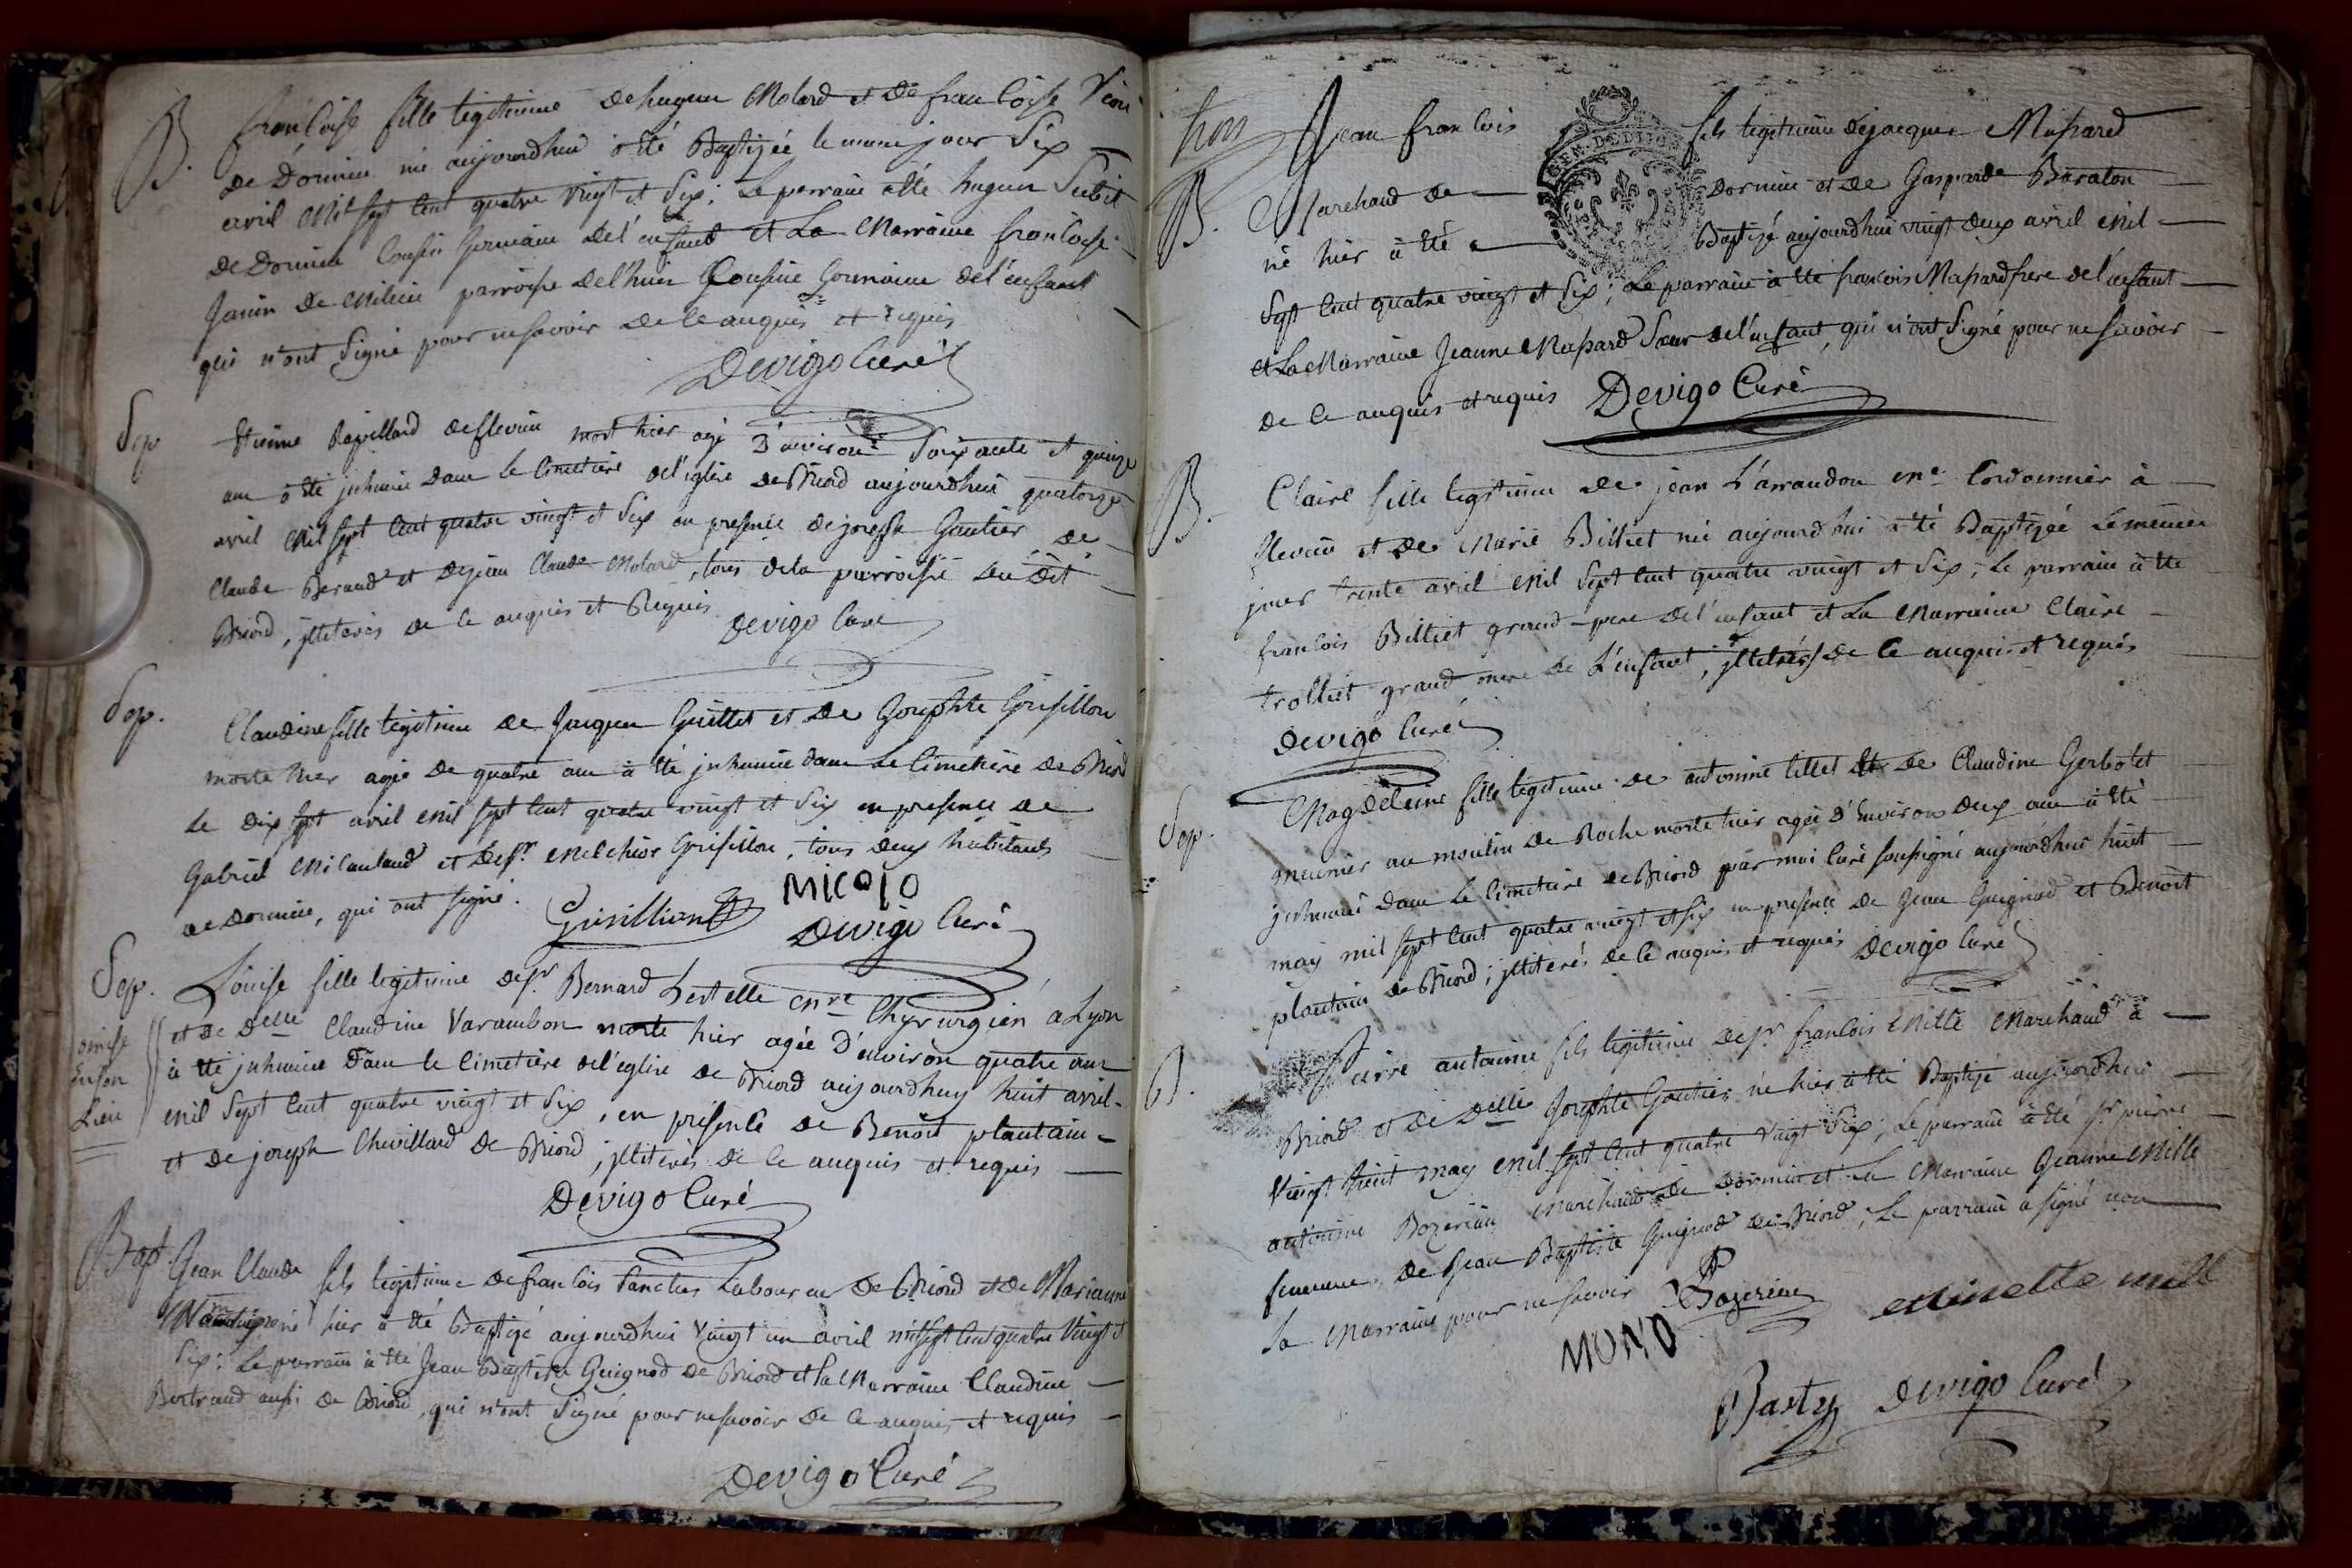 B. francoise fille legitime de hugue Molard et de francoise
de Dornieu née aujourdhui a été Baptizée le meme jour Six
avril mil sept cent quatre vingt et Six; Le parrain a été hugue
de Dornieu Cousin Germain de l'enfant et La Marraine francoise
Janin de parroisse de l'huis Cousine Germaine de l'enfant
qui n'ont Signé pour ne savoir de ce enquis et requis
Devigo Curé
Sep Etienne Rapillard de flevieu mort hier agé d'environ Soixante et quinze
ans a été inhumé dans le Cimetiere de l'eglise de Briord aujourdhui quatorze
avril mil sept cent quatre vingt et Six en presence de joseph Gautier de
Claude Beraud et de jean Claude Molard, tous de la parroisse du dit
Briord, jlliterés de ce enquis et Requis
Devigo Curé
Sep. Claudine fille legitime de Jacque Guillet et de Josephte Grisillon
morte hier agée de quatre ans a été inhumée dans le Cimetiere de Briord
le dix sept avril mil sept cent quatre vingt et Six en presence de
Gabriel et de sr. Melchior Grisillon, tous deux habitants
de dornieu, qui ont signé. Grisillion MICOJO
Devigo Curé
Sep. Louise fille legitime de sr Bernard Lestelle mre Chyrurgien a Lyon
et de Delle Claudine Varambon morte hier agée d'environ quatre ans
a été inhumée dans le Cimetiere de l'eglise de Briord aujourdhuy huit avril
mil Sept cent quatre vingt et Six, en presence de Benoit plantain
et de joseph Chevillard de Briord, jlliterés de ce enquis et requis
omise
en son
Lieu
Devigo Curé
Bap. Jean Claude fils legitime de francois Sanctus Laboureur de Briord et de Marianne
né hier a été Baptizé aujourdhui vingt un avril mil sept cent quatre vingt et
Six: Le parrain a été Jean Baptiste Guignod de Briord et la Marraine Claudine
Bertrand aussi de Briord, qui n'ont Signé pour ne savoir de ce enquis et requis
Devigo Curé
Jean francois fils legitime de jacque Massard
B. Marchand de Dornieu et de Gasparde Baraton
né hier a été Baptizé aujourdhui vingt deux avril mil
GEN. DE DIJON
Sept cent quatre vingt et Six; Le parrain a été francois Massard frere de l'enfant
et La Marraine Jeanne Massard Sœur de l'enfant, qui n'ont Signé pour ne savoir
de ce enquis et requis Devigo Curé
B. Claire fille legitime de jean L'arraudon me. Cordonnier à
flevieu et de Marie Billiet née aujourdhui a été Baptizée Le meme
jour trente avril mil Sept cent quatre vingt et Six; Le parrain a été
francois Billiet grand-pere de l'enfant et La Marraine Claire
trolliet grand mere de L'enfant; jlliterés de ce enquis et requis
Devigo Curé
Sep. Magdeleine fille legitime de antoinne tillet et de Claudine Gerbotet
meunier au moulin de Roche morte hier agée d'Environ deux ans a été
inhumée dans Le Cimetiere de Briord par moi Curé soussigné aujourdhui huit
may mil sept cent quatre vingt et six en presence de Jean Guignod et Benoit
plantain de Briord; jlliterés de ce enquis et requis Devigo Curé
B. Pierre antoinne fils legitime de sr francois Mille Marchand à
Briord et de Delle Josephte Gautier né hier a été Baptizé aujourdhui
vingt huit may mil sept cent quatre vingt Six; Le parrain a été sr pierre
antoinne Bozerian Marchand de Dornieu et La Marraine Jeanne Mille
femme de Jean Baptiste Guignod de Briord, Le parrain a signé non
La Marraine pour ne savoir Bozerian
MONO
Basty Devigo Curé